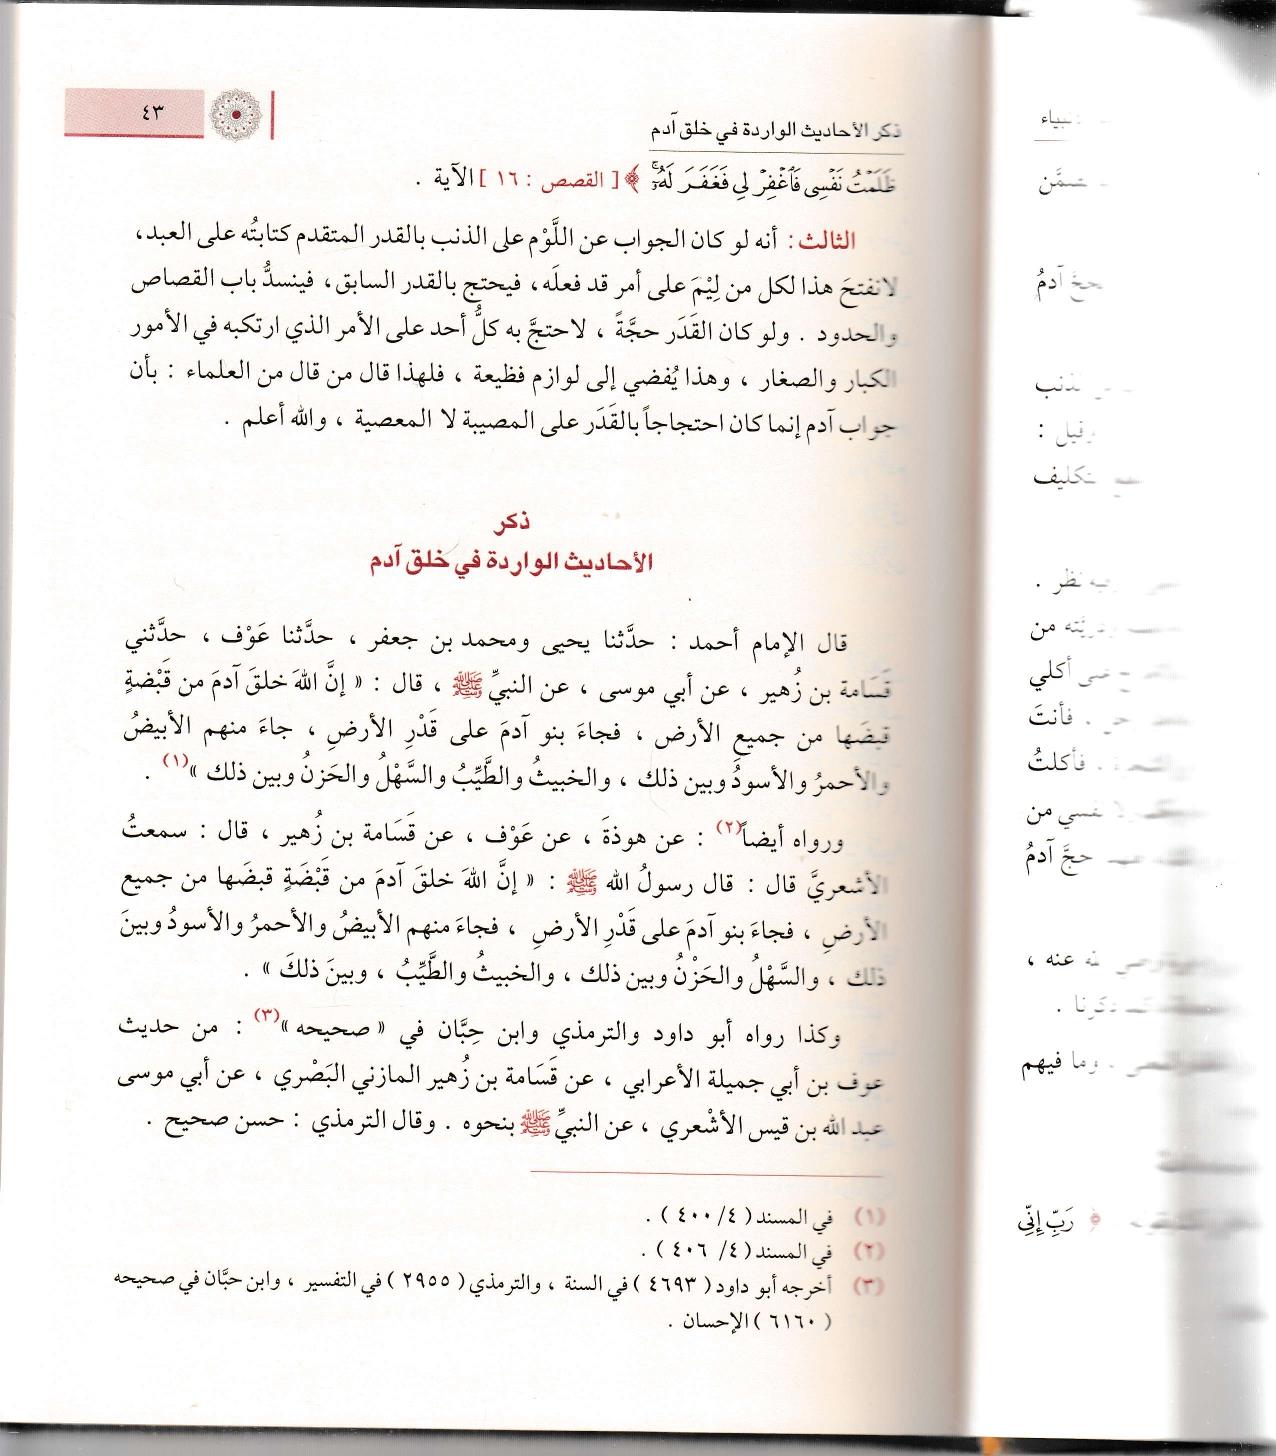 ٤٣
ذكر الأحاديث الواردة في خلق آدم
ظَلَمْتُ نَفْسِى فَاغْفِرْ لِي فَغَفَرَ لَهُ ﴾ [ القصص : ١٦ ] الآية .
الثالث : أنه لو كان الجواب عن اللَّوْم على الذنب بالقدر المتقدم كتابتُه على العبد،
لانفتحَ هذا لكل من لِيْمَ على أمر قد فعلَه ، فيحتج بالقدر السابق، فينسدُّ باب القصاص
والحدود . ولو كان القَدَر حجَّةً ، لاحتجَّ به كلُّ أحد على الأمر الذي ارتكبه في الأمور
الكبار والصغار ، وهذا يُفضي إلى لوازم فظيعة ، فلهذا قال من قال من العلماء : بأن
جواب آدم إنما كان احتجاجاً بالقَدَر على المصيبة لا المعصية ، والله أعلم .
ذكر
الأحاديث الواردة في خلق آدم
قال الإمام أحمد : حدَّثنا يحيى ومحمد بن جعفر ، حدَّثنا عَوْف ، حدَّثني
قَسَامة بن زُهير ، عن أبي موسى ، عن النبيِّ ﷺ ، قال : « إنَّ اللهَ خلقَ آدمَ من قَبْضةٍ
قبضَها من جميعِ الأرض ، فجاءَ بنو آدمَ على قَدْرِ الأرضِ ، جاءَ منهم الأبيضُ
والأحمرُ والأسودُ وبين ذلك ، والخبيثُ والطَّيِّبُ والسَّهْلُ والحَزنُ وبين ذلك »(١) .
ورواه أيضاً(٢) : عن هوذةَ ، عن عَوْف ، عن قَسَامة بن زُهير ، قال : سمعتُ
الأشعريَّ قال : قال رسولُ الله ﷺ : « إنَّ اللهَ خلقَ آدمَ من قَبْضَةٍ قبضَها من جميع
الأرضِ ، فجاءَ بنو آدمَ على قَدْرِ الأرضِ ، فجاءَ منهم الأبيضُ والأحمرُ والأسودُ وبينَ
ذلك ، والسَّهْلُ والحَزْنُ وبين ذلك ، والخبيثُ والطَّيِّبُ ، وبينَ ذلكَ » .
وكذا رواه أبو داود والترمذي وابن حِبَّان في « صحيحه »(٣) : من حديث
عوف بن أبي جميلة الأعرابي ، عن قَسَامة بن زُهير المازني البَصْري ، عن أبي موسى
عبد الله بن قيس الأشْعري ، عن النبيِّ ﷺ بنحوه . وقال الترمذي : حسن صحيح .
(١) في المسند ( ٤/ ٤٠٠ ) .
(٢) في المسند ( ٤/ ٤٠٦ ) .
(٣) أخرجه أبو داود ( ٤٦٩٣ ) في السنة ، والترمذي ( ٢٩٥٥ ) في التفسير ، وابن حبَّان في صحيحه
( ٦١٦٠ ) الإحسان .
آدمُ
وقيل :
نظر .
من
أكلي
فأنتَ
فأكلتُ
نفسي من
حجَّ آدمُ
عنه ،
ذكرنا .
وما فيهم
﴿ رَبِّ إِنِّي